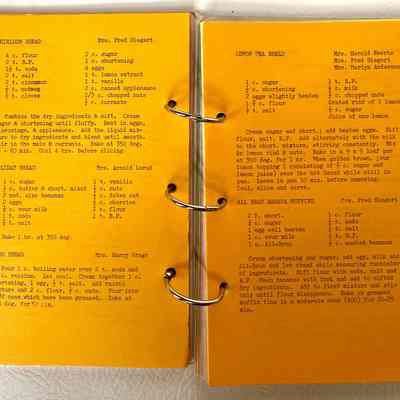 HEIRLOOM BREAD Mrs. Fred Siegert
4 c. flour 2 c. sugar
2 t. B.P. 1 c. shortening
1½ t. soda 4 eggs
2 t. salt 1 t. lemon extract
1 t. cinnamon 1 t. vanilla
½ t. nutmeg 2 c. canned applesauce
½ t. cloves 2/3 c. chopped nuts
½ c. currants
Combine the dry ingredients & sift. Cream
sugar & shortening until fluffy. Beat in eggs,
flavorings, & applesauce. Add the liquid mix-
ture to dry ingredients and blend until smooth.
Stir in the nuts & currants. Bake at 350 deg.
- 60 min. Cool 4 hrs. before slicing.
BREAD Mrs. Arnold
c. sugar 1 t. vanilla
c. butter & short. mixed c. nuts
med. size bananas c. dates
2 eggs c. cherries
c. sour milk 2 c. flour
t. soda 1 t. B.P.
t. salt
Bake 1 hr. at 350 deg.
BREAD Mrs. Harry
Pour 1 c. boiling water over 2 t. soda and
c. raisins. Let cool. Cream together 1 c.
shortening, 1 egg, ½ t. salt. Add raisin
mixture and 2 c. flour, ½ c. nuts. Pour into
cans which have been greased. Bake at
deg. for
LEMON TEA BREAD Mrs. Harold
Mrs. Fred Siegert
Mrs. Marlyn
1 c. sugar 1 t. B.P.
c. shortening ½ c. milk
2 eggs slightly beaten ½ c. chopped nuts
c. flour Grated rind of 1 lemon
t. salt c. sugar
Juice of one lemon
Cream sugar and short.; add beaten eggs. Sift
flour, salt, B.P. Add alternately with the milk
to the short. mixture, stirring constantly. Mix
in lemon rind & nuts. Bake in a 9 x 5 loaf pan
at 350 deg. for 1 hr. When golden brown, pour
lemon topping ( consisting of ½ c. sugar and
lemon juice) over the hot bread while still in
pan. Leave in pan 30 min. before removing.
Cool, slice and serve.
ALL BRAN BANANA MUFFINS Mrs. Fred Siegert
2 T. short. 1 c. flour
c. sugar t. soda
1 egg well beaten t. salt
c. sour milk t. B.P.
1 c. All-Bran c. mashed bananas
Cream shortening and sugar; add egg, milk and
All-Bran and let stand while measuring remaining
ingredients. Sift flour with soda, salt and
B.P. Mash bananas with fork and add to sifted
dry ingredients. Add to first mixture and stir
only until flour disappears. Bake in greased
muffin tins in a moderate oven (400) for 20-25
min.